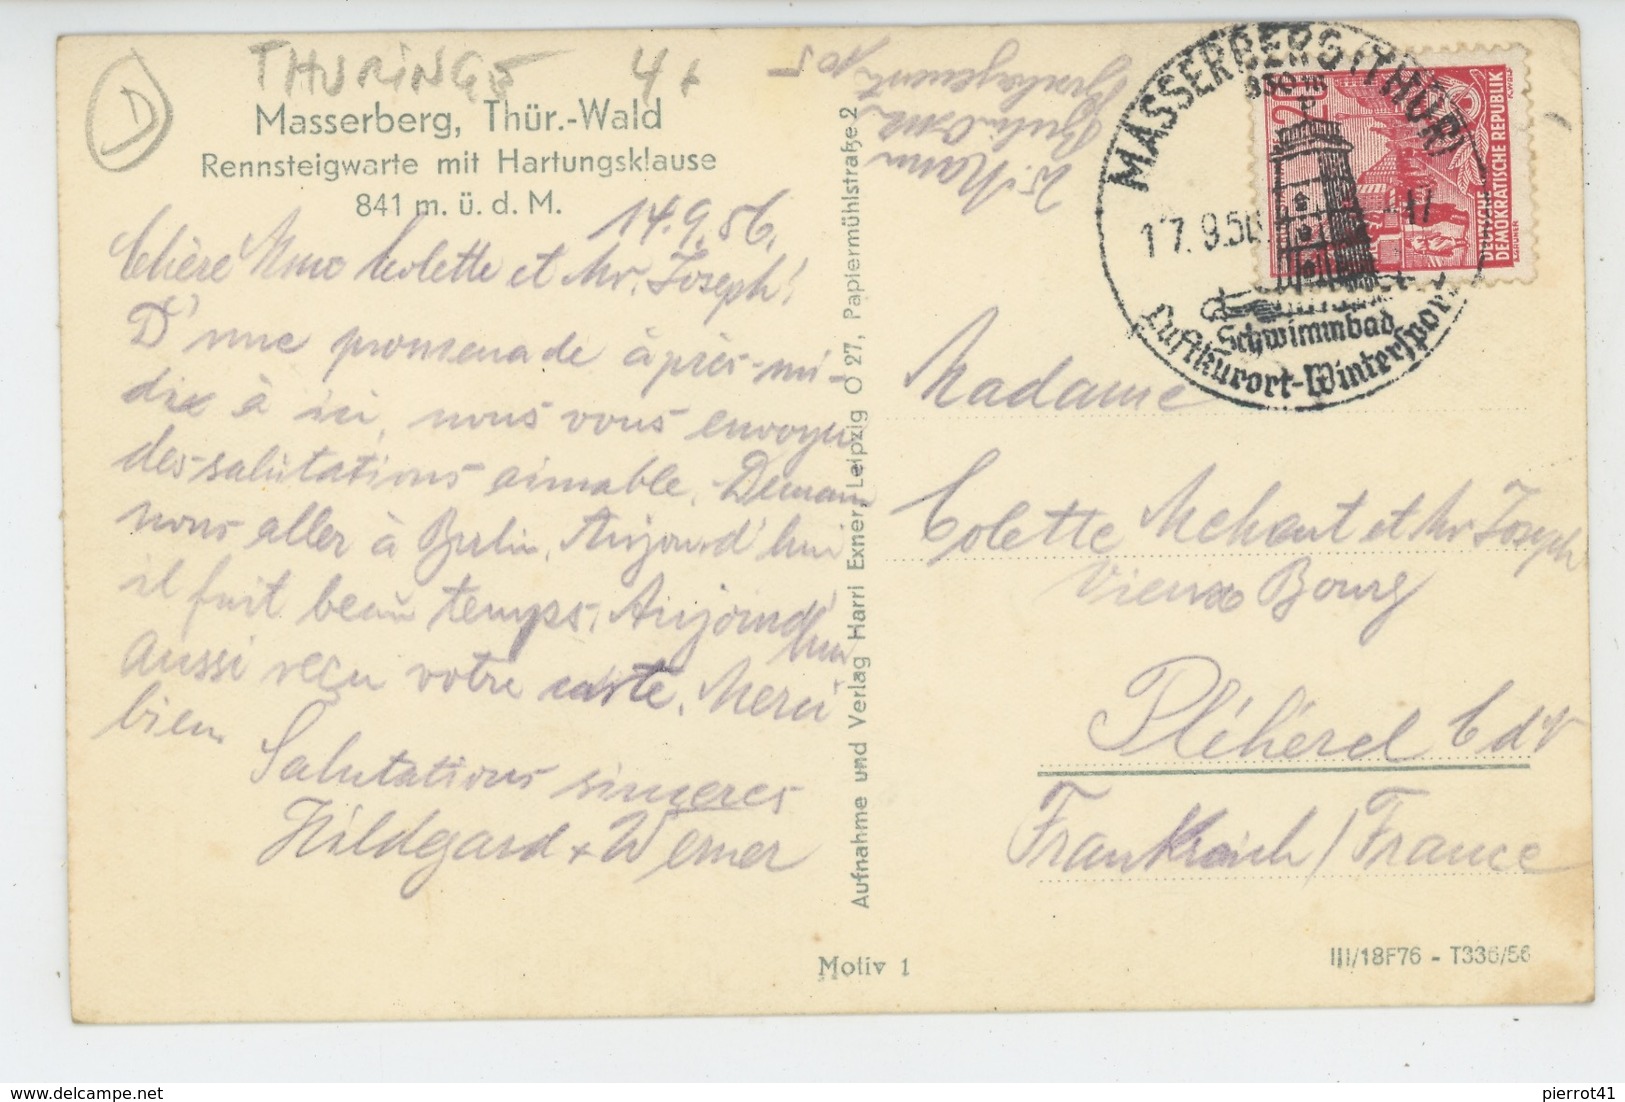 D
THURINGE 4+
Masserberg, Thür.-Wald
Rennsteigwarte mit Hartungsklause
841 m. ü. d. M.
14.9.56.
Chère Mme Colette et Mr. Joseph!
D'une promenade après-mi-
die à ici, nous vous envoyer
des salutations aimable. Demain
nous aller à Berlin. Aujourd'hui
il fait beau temps. Aujourd'hui
aussi reçu votre carte. Merci
bien
Salutations sinceres
Hildgard + Werner
Aufnahme und Verlag Harri Exner, Leipzig O 27, Papiermühlstraße 2
Motiv 1
W. Mann
MASSERBERG (THÜR)
17.9.56
-17
Schwimmbad
Luftkurort-Wintersport
20
DEUTSCHE
DEMOKRATISCHE REPUBLIK
Madame
Colette Mehaut et Mr Joseph
Vieux Bourg
Pléhérel C d N
Frankreich / France
III/18F76 - T336/56
pierrot41